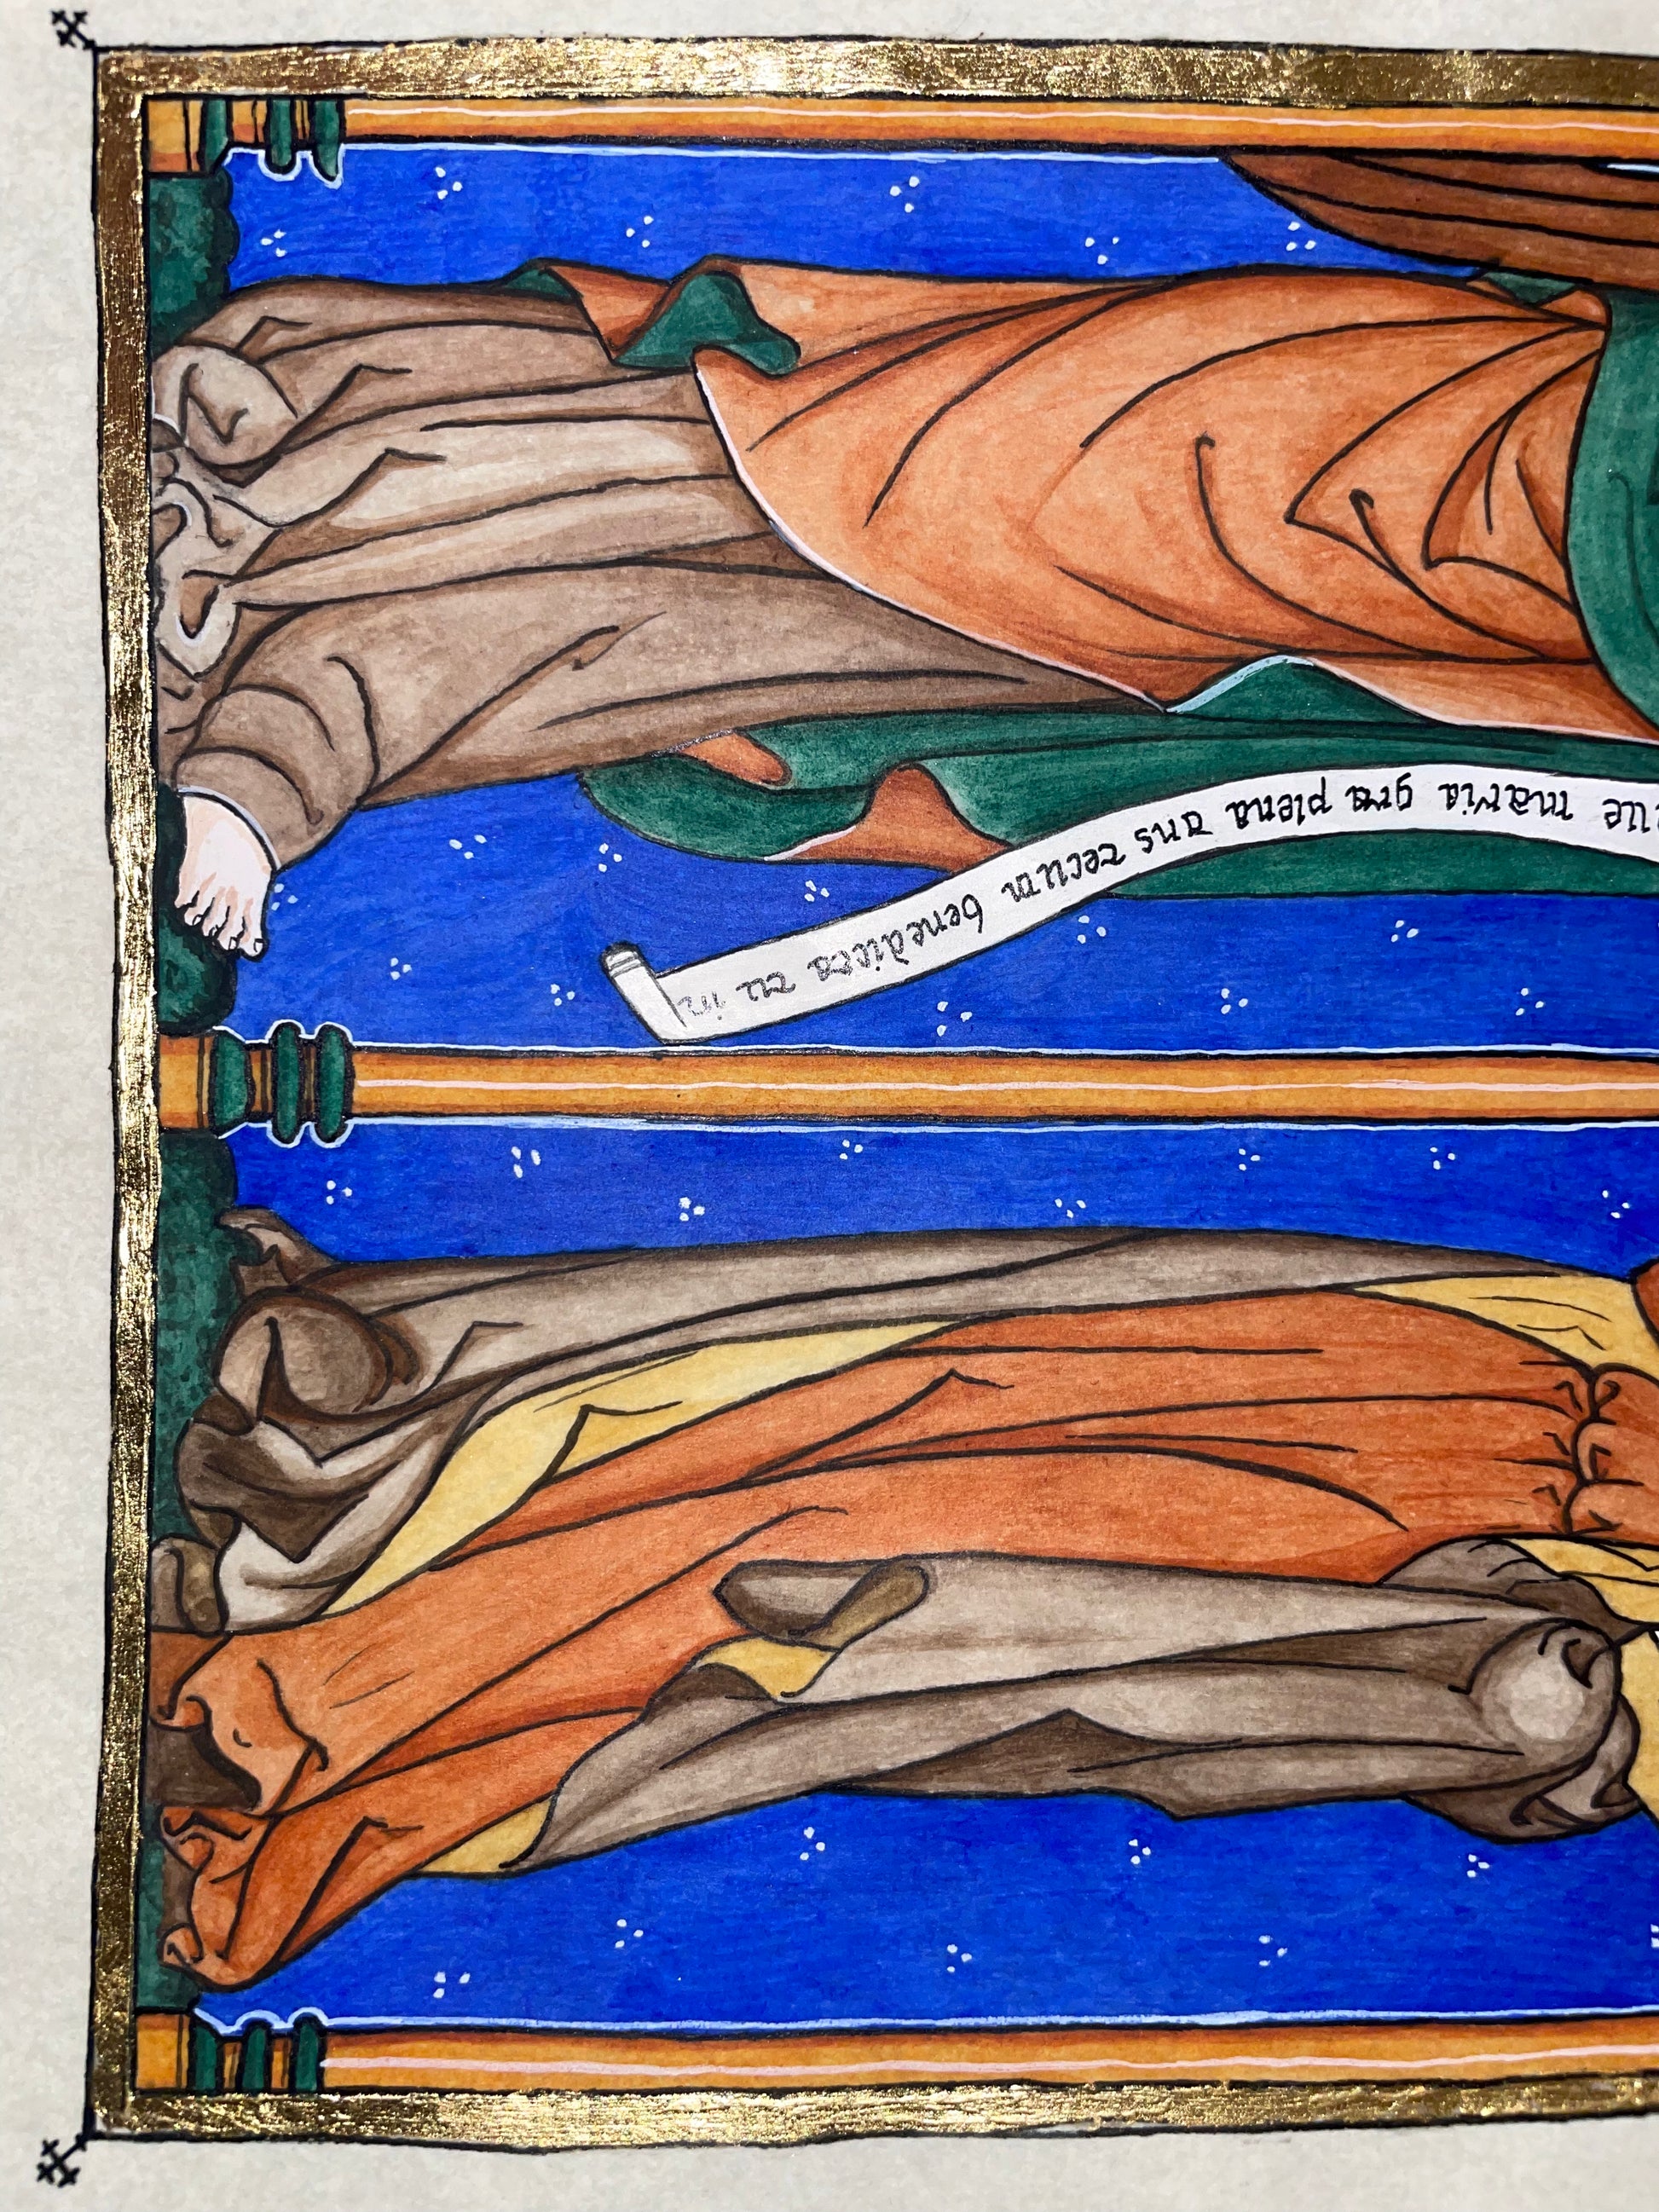 ue maria gra plena dns tecum benedicta tu in